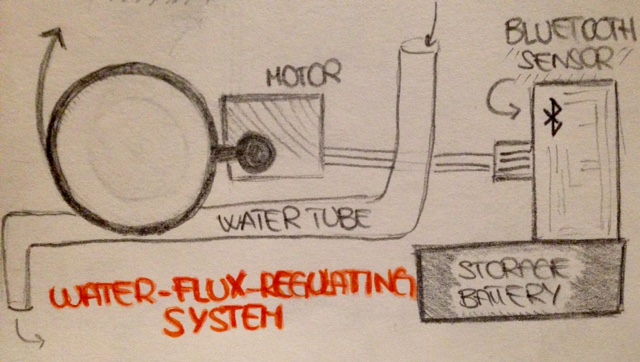 BLUETOOTH
SENSOR
MOTOR
WATER TUBE
STORAGE
BATTERY
WATER-FLUX-REGULATING
SYSTEM